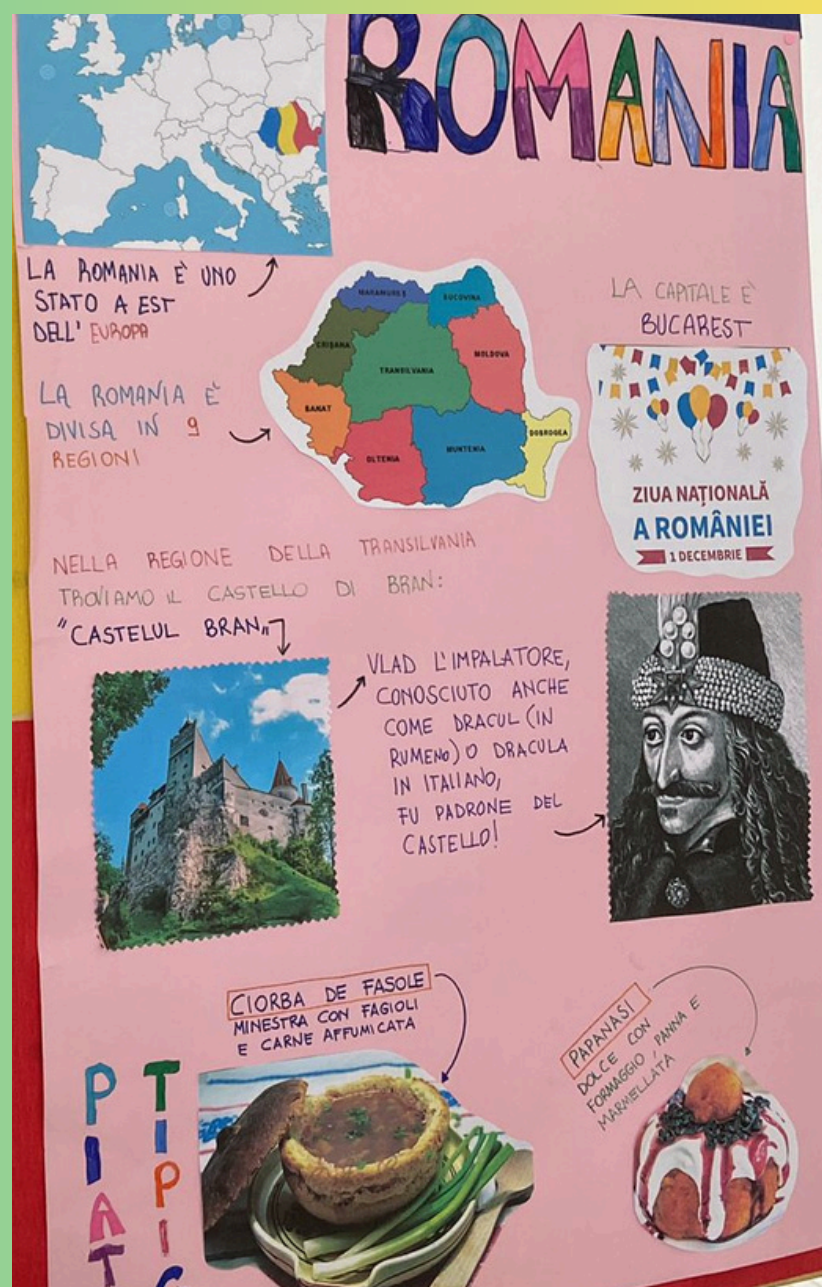 ROMANIA
LA ROMANIA È UNO
STATO A EST
DELL' EUROPA
LA ROMANIA È
DIVISA IN 9
REGIONI
MARAMUREȘ
BUCOVINA
CRIȘANA
TRANSILVANIA
MOLDOVA
BANAT
OLTENIA
MUNTENIA
DOBROGEA
LA CAPITALE È
BUCAREST
ZIUA NAȚIONALĂ
A ROMÂNIEI
1 DECEMBRIE
NELLA REGIONE DELLA TRANSILVANIA
TROVIAMO IL CASTELLO DI BRAN:
"CASTELUL BRAN"
VLAD L'IMPALATORE,
CONOSCIUTO ANCHE
COME DRACUL (IN
RUMENO) O DRACULA
IN ITALIANO,
FU PADRONE DEL
CASTELLO!
CIORBA DE FASOLE
MINESTRA CON FAGIOLI
E CARNE AFFUMICATA
PAPANASI
DOLCE CON
FORMAGGIO, PANNA E
MARMELLATA
PIAT
TIPIC